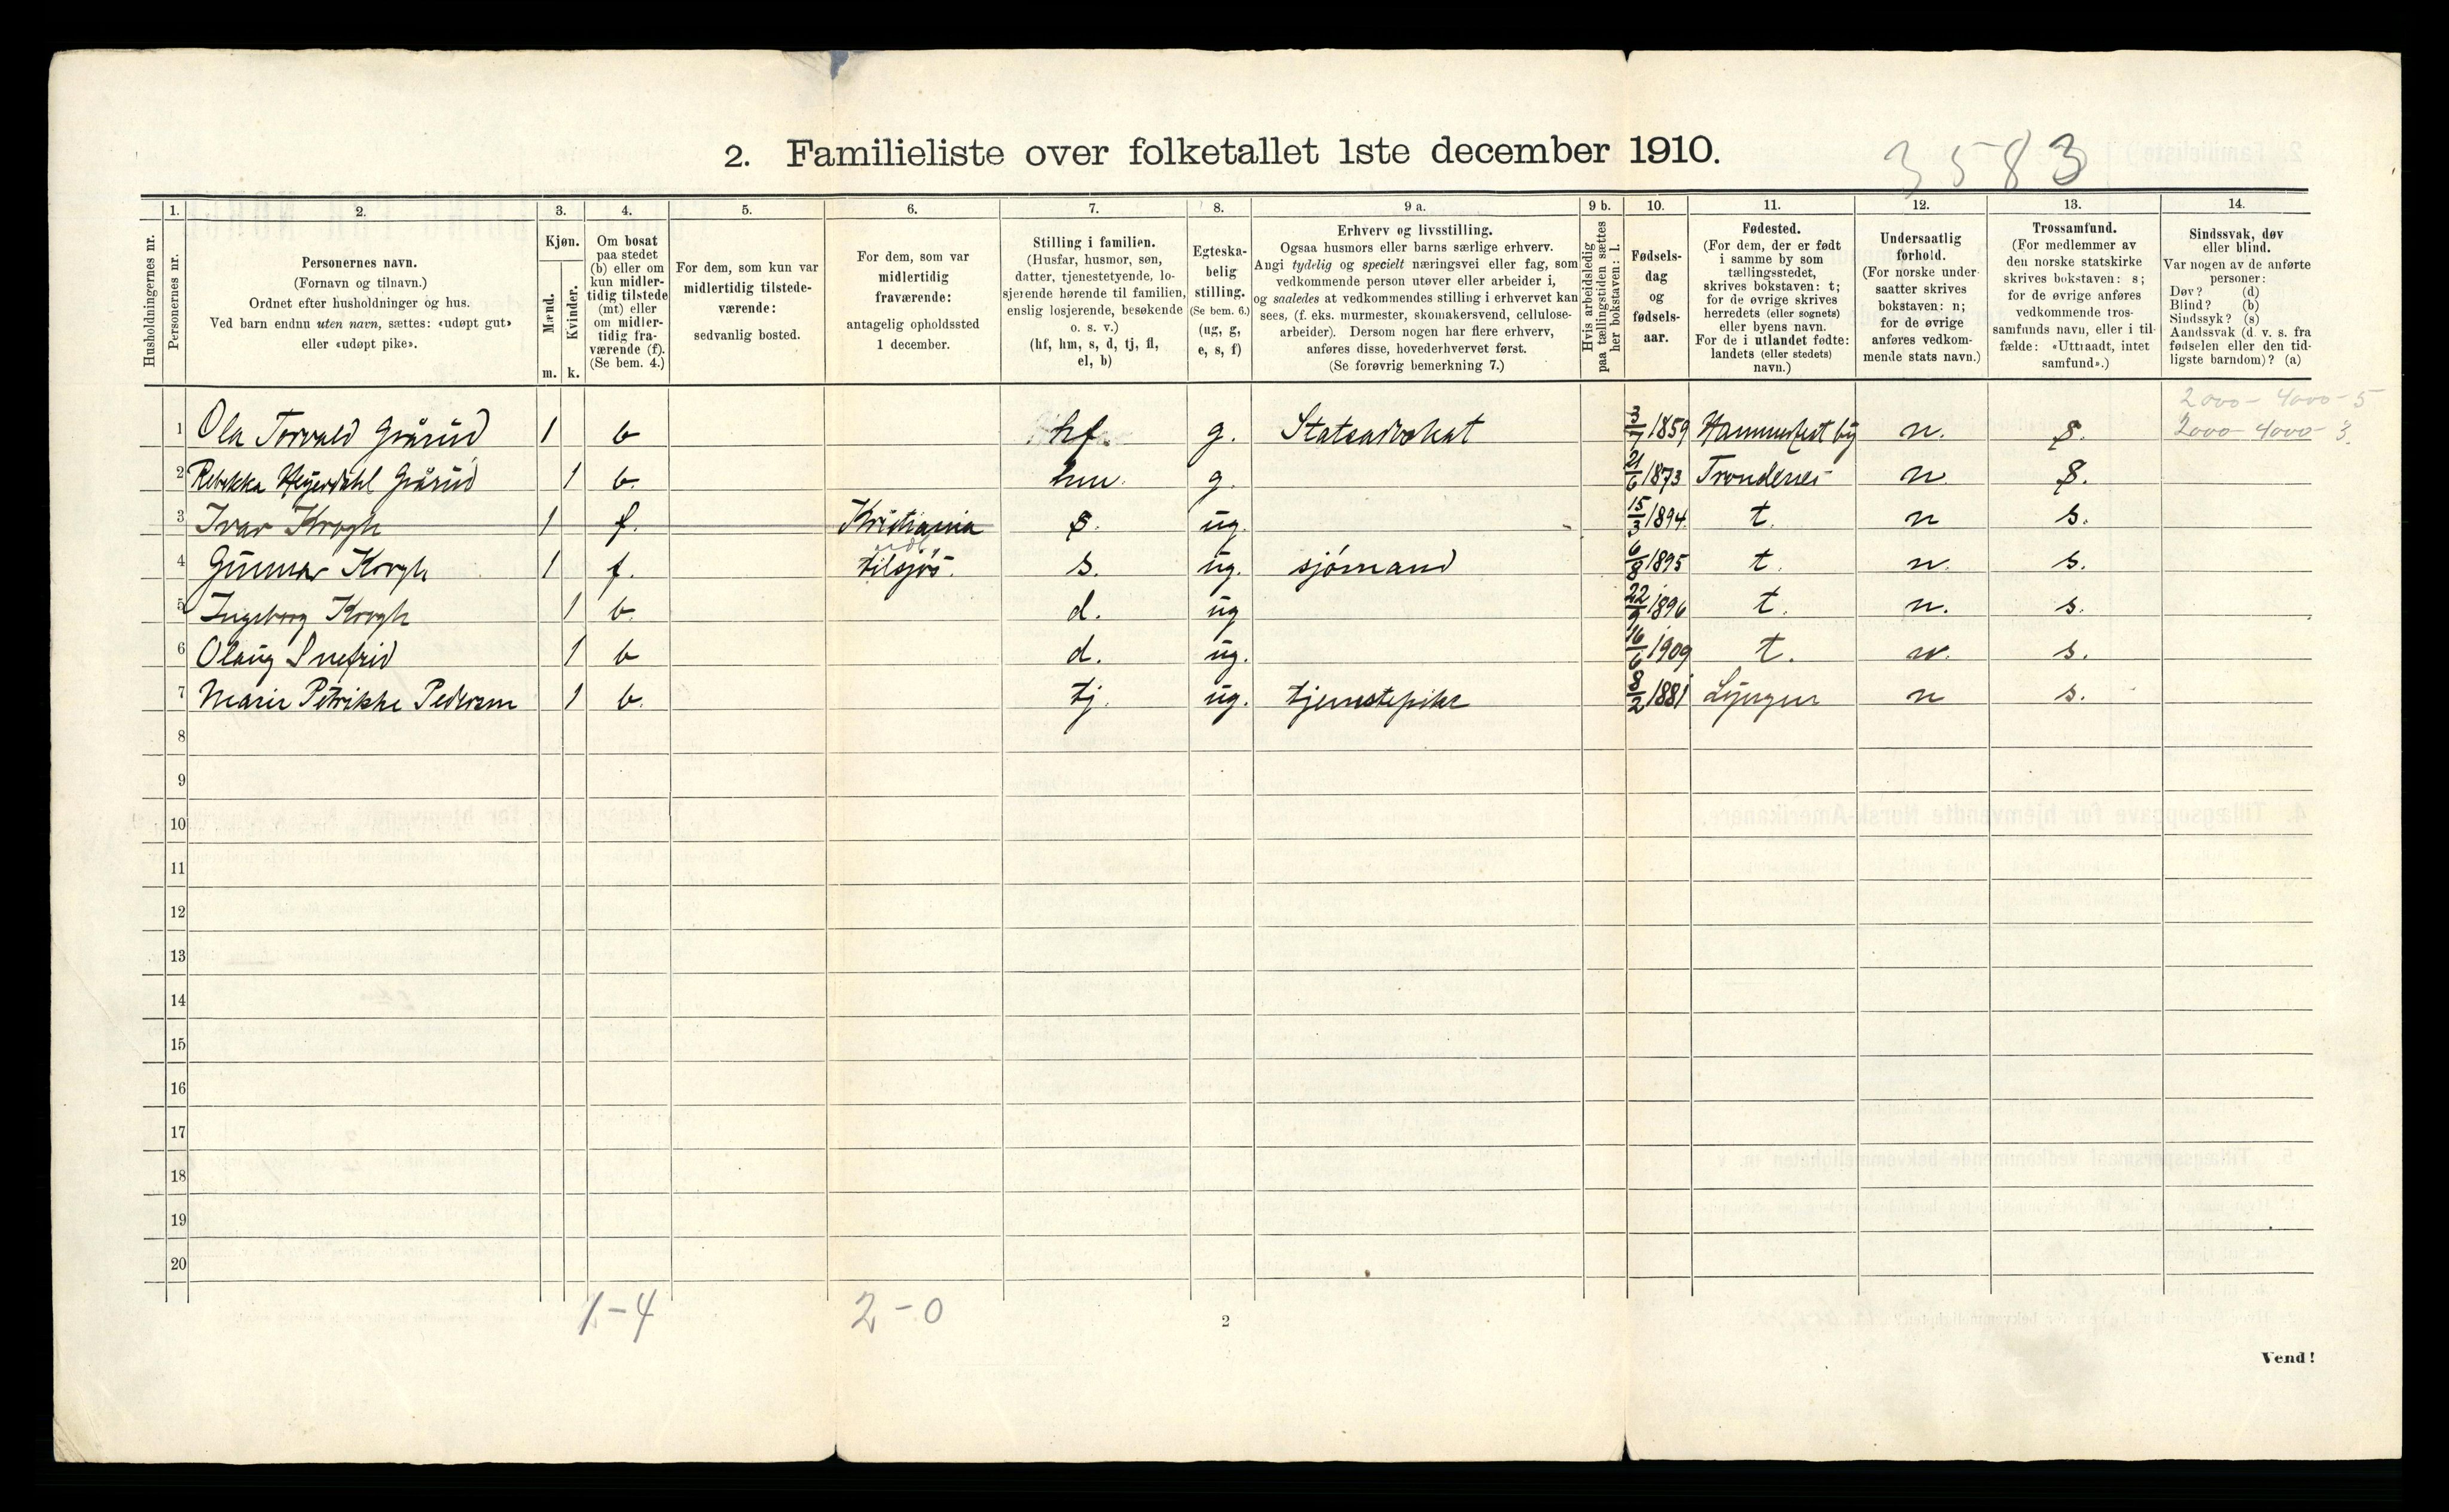 2. Familieliste over folketallet 1ste december 1910.
3583
Husholdningernes nr.
1.
Personernes nr.
2.
Personernes navn.
(Fornavn og tilnavn.)
Ordnet efter husholdninger og hus.
Ved barn endnu uten navn, sættes: «udøpt gut»
eller «udøpt pike».
3.
Kjøn.
Mænd.
Kvinder.
m. k.
4.
Om bosat
paa stedet
(b) eller om
kun midler-
tidig tilstede
(mt) eller
om midler-
tidig fra-
værende (f).
(Se bem. 4.)
5.
For dem, som kun var
midlertidig tilstede-
værende:
sedvanlig bosted.
6.
For dem, som var
midlertidig
fraværende:
antagelig opholdssted
1 december.
7.
Stilling i familien.
(Husfar, husmor, søn,
datter, tjenestetyende, lo-
sjerende hørende til familien,
enslig losjerende, besøkende
o. s. v.)
(hf, hm, s, d, tj, fl,
el, b)
8.
Egteska-
belig
stilling.
(Se bem. 6.)
(ug, g,
e, s, f)
9 a.
Erhverv og livsstilling.
Ogsaa husmors eller barns særlige erhverv.
Angi tydelig og specielt næringsvei eller fag, som
vedkommende person utøver eller arbeider i,
og saaledes at vedkommendes stilling i erhvervet kan
sees, (f. eks. murmester, skomakersvend, cellulose-
arbeider). Dersom nogen har flere erhverv,
anføres disse, hovederhvervet først.
(Se forøvrig bemerkning 7.)
9 b.
Hvis arbeidsledig
paa tællingstiden sættes
her bokstaven: l.
10.
Fødsels-
dag
og
fødsels-
aar.
11.
Fødested.
(For dem, der er født
i samme by som
tællingsstedet,
skrives bokstaven: t;
for de øvrige skrives
herredets (eller sognets)
eller byens navn.
For de i utlandet fødte:
landets (eller stedets)
navn.)
12.
Undersaatlig
forhold.
(For norske under-
saatter skrives
bokstaven: n;
for de øvrige
anføres vedkom-
mende stats navn.)
13.
Trossamfund.
(For medlemmer av
den norske statskirke
skrives bokstaven: s;
for de øvrige anføres
vedkommende tros-
samfunds navn, eller i til-
fælde: «Uttraadt, intet
samfund».)
14.
Sindssvak, døv
eller blind.
Var nogen av de anførte
personer:
Døv? (d)
Blind? (b)
Sindssyk? (s)
Aandssvak (d. v. s. fra
fødselen eller den tid-
ligste barndom)? (a)
2000 - 4000 - 5
1 Ola Torvald Grårud 1 b hf. g. Statsadvokat 3/7 1859 Hammerfest by n. s. 2000 - 4000 - 3.
2 Rebekka Heyerdahl Grårud 1 b. hm. g. 21/6 1873 Trondenes n s.
3 Ivar Krogh 1 f. Kristiania s. ug. 15/3 1894 t. n s.
4 Gunnar Krogh 1 f. tilsjøs. s. ug. sjómand 6/8 1895 t. n. s.
5 Ingeborg Krogh 1 b. d. ug 22/9 1896 t. n. s.
6 Olaug Snefrid 1 b d. ug. 16/6 1909 t. n. s.
7 Marie Petrikke Pedersen 1 b. tj. ug. tjenestepike 8/2 1881 Lyngen n s.
8
9
10
11
12
13
14
15
16
17
18
19
20
1-4 2-0
2
Vend!